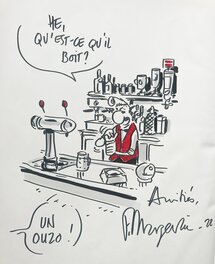 HE,
QU'EST-CE QU'IL
BOIT?
Amitiés,
F. Margerin
UN
OUZO !